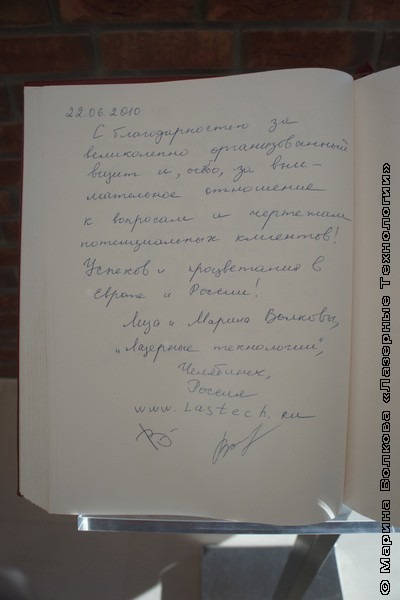 22.06.2010
С благодарностью за
великолепно организованный
визит и, особо, за вни-
мательное отношение
к вопросам и чертежам
потенциальных клиентов!
Успехов и процветания в
Европе и России!
Лиза и Марина Волковы,
„Лазерные технологии",
Челябинск,
Россия
www.Lastech.ru
© Марина Волкова «Лазерные Технологии»